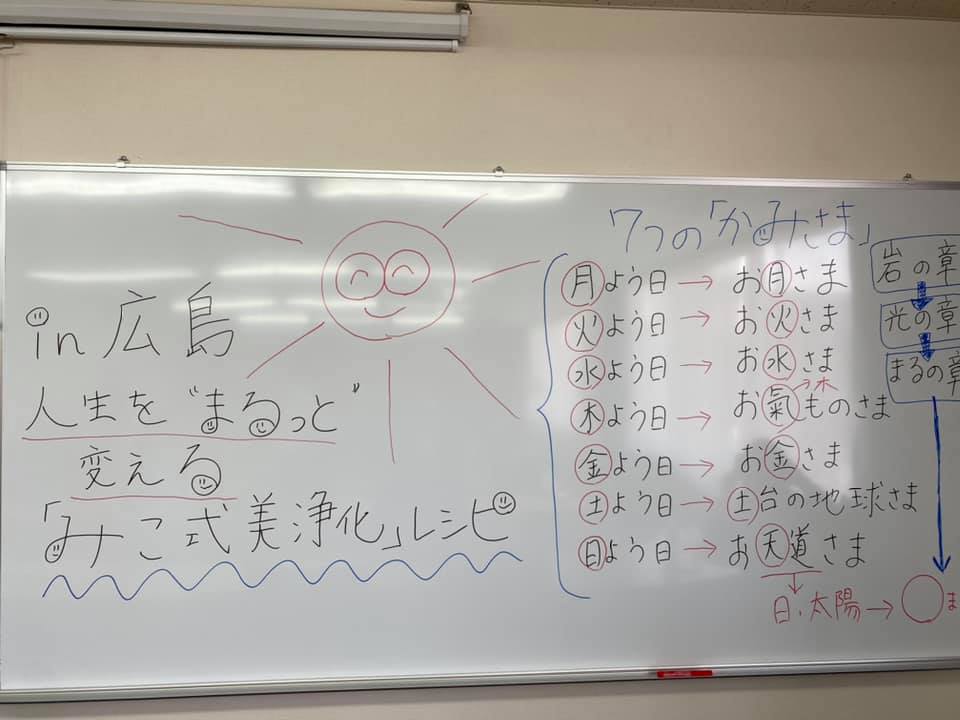 in 広島
人生を"まるっと"
変える
「みこ式美浄化」レシピ
7つの「かみさま」
月よう日 → お月さま
火よう日 → お火さま
水よう日 → お水さま
木よう日 → お氣ものさま
→木
金よう日 → お金さま
土よう日 → 土台の地球さま
日よう日 → お天道さま
日、太陽 → ○ま
岩の章
光の章
まるの章